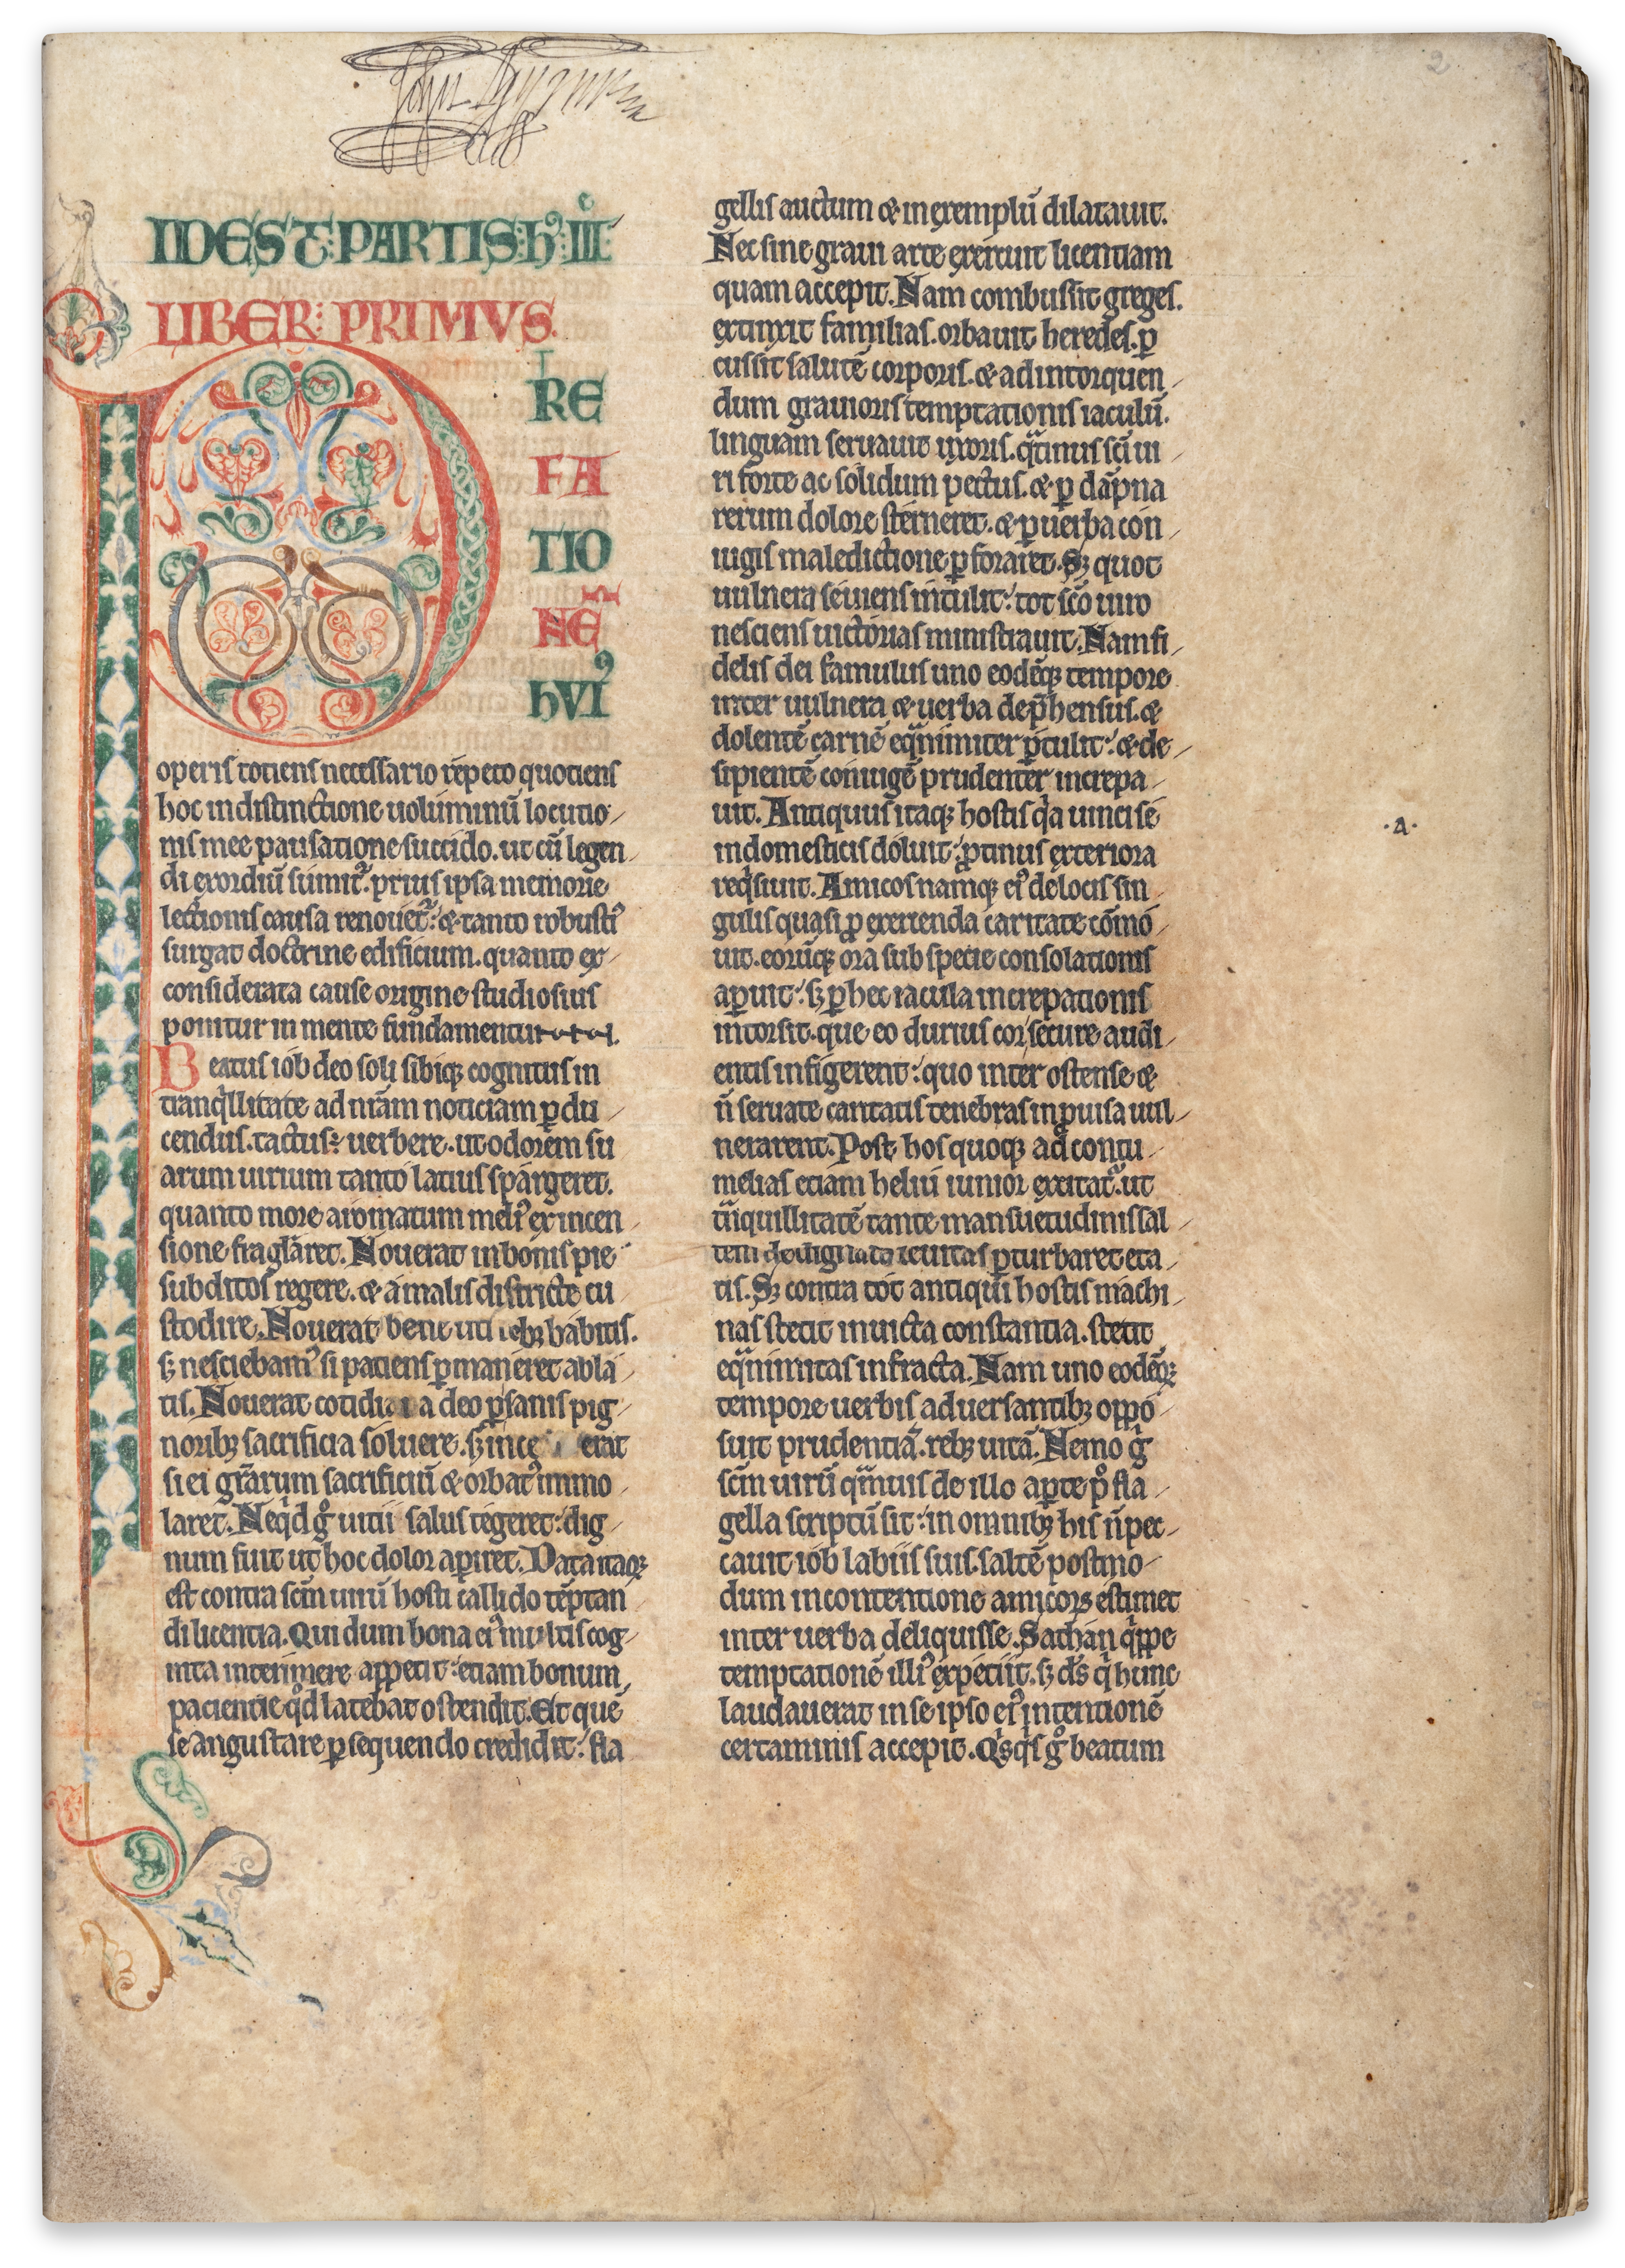 2
John
IDEST: PARTIS: h: III
LIBER: PRIMVS.
PRE
FA
TIO
NE
hVIꝰ
operis totiens necessario repeto quotiens
hoc in distinctione uoluminū locutio
nis mee pausatione succido. ut cū legen
di exordiū sumit᷑. prius ipsa memorie
lectionis causa renouet᷑: & tanto robustiꝰ
surgat doctrine edificium. quanto ex
considerata cause origine studiosius
ponitur in mente fundamentum.
Beatus iob deo soli sibiq; cognitus in
tranqͥllitate ad nr̄am noticiam ꝑdu
cendus. tactus: uerbere. ut odorem su
arum uirium tanto latius spargeret.
quanto more aromatum meliꝰ ex incen
sione fraglaret. Nouerat in bonis pie
subditos regere. & a malis districte cu
stodire. Nouerat bene uti rebꝫ habitis.
sꝫ nesciebamꝰ si patiens ꝑmaneret abla
tis. Nouerat cotidiana deo ꝑ sanis pig
noribꝫ sacrificia soluere. sꝫ ince erat
si ei gr̄arum sacrificiū & orbatꝰ immo
laret. Ne qͥd gͦ uitii salus tegeret: dig
num fuit ut hoc dolor aꝑiret. Data itaqꝫ
est contra scm̄ uirū hosti callido tēptan
di licentia. Qui dum bona eiꝰ multis cog
nita interimere appetit: etiam bonum
pacientie qͦd latebat ostendit. Et quē
se angustare ꝑsequendo credidit: fla
gellis auctum & in exemplū dilatauit.
Nec sine graui arte exercuit licentiam
quam accepit. Nam combussit greges.
extinxit familias. orbauit heredes. ꝑ
cussit salutē corporis. & ad intorquen
dum grauioris temptationis iaculū.
linguam seruauit uxoris. qͣtinus sc̄i ui
ri forte ac solidum pectus. & ꝑ dāpna
rerum dolore sterneret. & ꝑ uerba con
iugis maledictione ꝑforaret. Sꝫ quot
uulnera seuiens intulit: tot sc̄o uiro
nesciens uictorias ministrauit. Nam fi
delis dei famulus uno eodēqꝫ tempore
inter uulnera & uerba dep̄hensus. &
dolentē carnē eqͣnimiter ꝑtulit: & de
sipientē coniugē prudenter increpa
uit. Antiquus itaqꝫ hostis qͥa uinci se
in domesticis doluit: ꝓtinus exteriora
reqͥsiuit. Amicos namqꝫ eiꝰ de locis sin
gulis quasi ꝓ exerenda caritate cōmo
uit. eorūqꝫ ora sub specie consolationis
aꝑuit: sꝫ ꝑ hec iacula increpationis
intorsit. que eo durius cor secure audi
entis infigerent: quo inter ostense &
n̄ seruate caritatis tenebras inꝓuisa uul
nerarent. Post hos quoqꝫ ad contu
melias etiam heliu iunior excitat᷑. ut
tͣnquillitatē tante mansuetudinis sal
tem dedignata leuitas ꝑturbaret eta
tis. Sꝫ contra tot antiqui hostis machi
nas stetit inuicta constantia. stetit
eqͣnimitas infracta. Nam uno eodēqꝫ
tempore uerbis aduersantibꝫ oppo
suit prudentiā. rebꝫ uitā. Nemo gͦ
scm̄ uirū qͣmuis de illo aꝑte pͦ fla
gella scriptū sit: in omnibꝫ his n̄ pec
cauit iob labiis suis. saltē postmo
dum in contentione amicoꝝ estimet
inter uerba deliquisse. Sathan qͥppe
temptationē illiꝰ expetiit. sꝫ ds̄ qͥ hunc
laudauerat in se ipso eiꝰ intentionē
certaminis accepit. Qͥsqͥs gͦ beatum
·a·